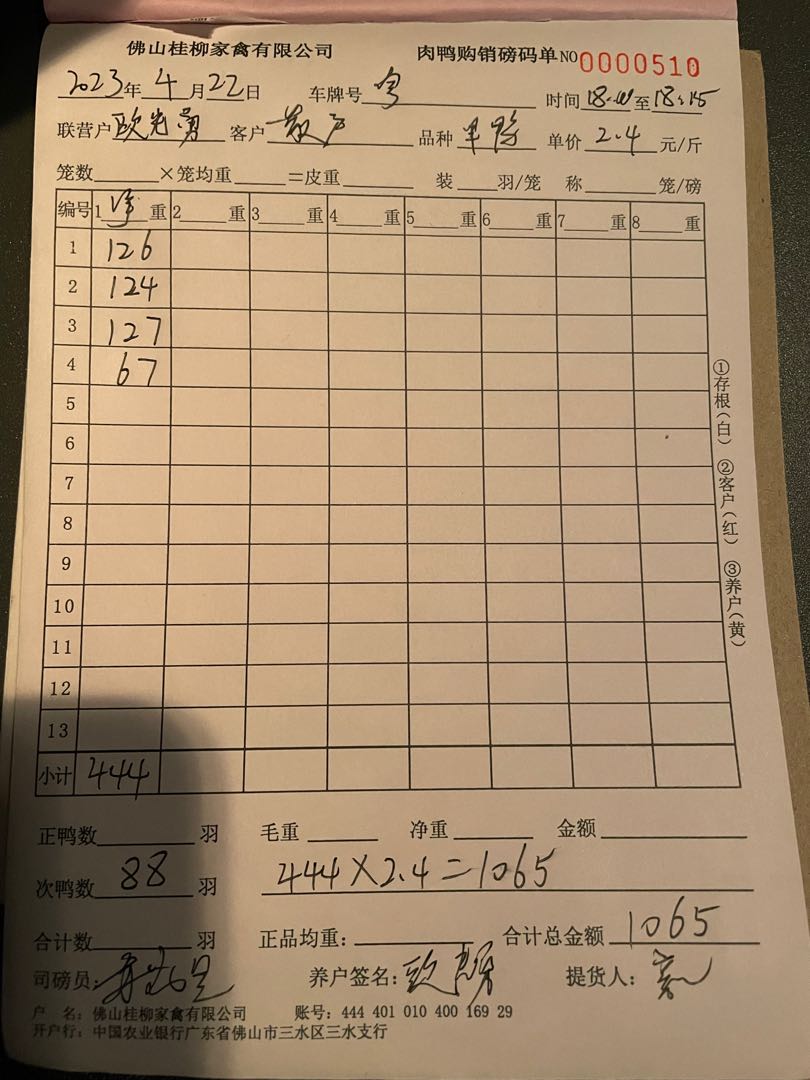 佛山桂柳家禽有限公司 肉鸭购销磅码单 NO 0000510
2023年 4月 22日 车牌号 粤 时间 18:10 至 18:15
联营户 欧先勇 客户 散户 品种 半鸭 单价 2.4 元/斤
笼数 ×笼均重 =皮重 装 羽/笼 称 笼/磅
编号 1 净 重 2 重 3 重 4 重 5 重 6 重 7 重 8 重
1 126
2 124
3 127
4 67
5
6
7
8
9
10
11
12
13
小计 444
①存根(白) ②客户(红) ③养户(黄)
正鸭数 羽 毛重 净重 金额
次鸭数 88 羽 444×2.4=1065
合计数 羽 正品均重: 合计总金额 1065
司磅员: 养户签名: 提货人:
户 名: 佛山桂柳家禽有限公司 账号: 444 401 010 400 169 29
开户行: 中国农业银行广东省佛山市三水区三水支行